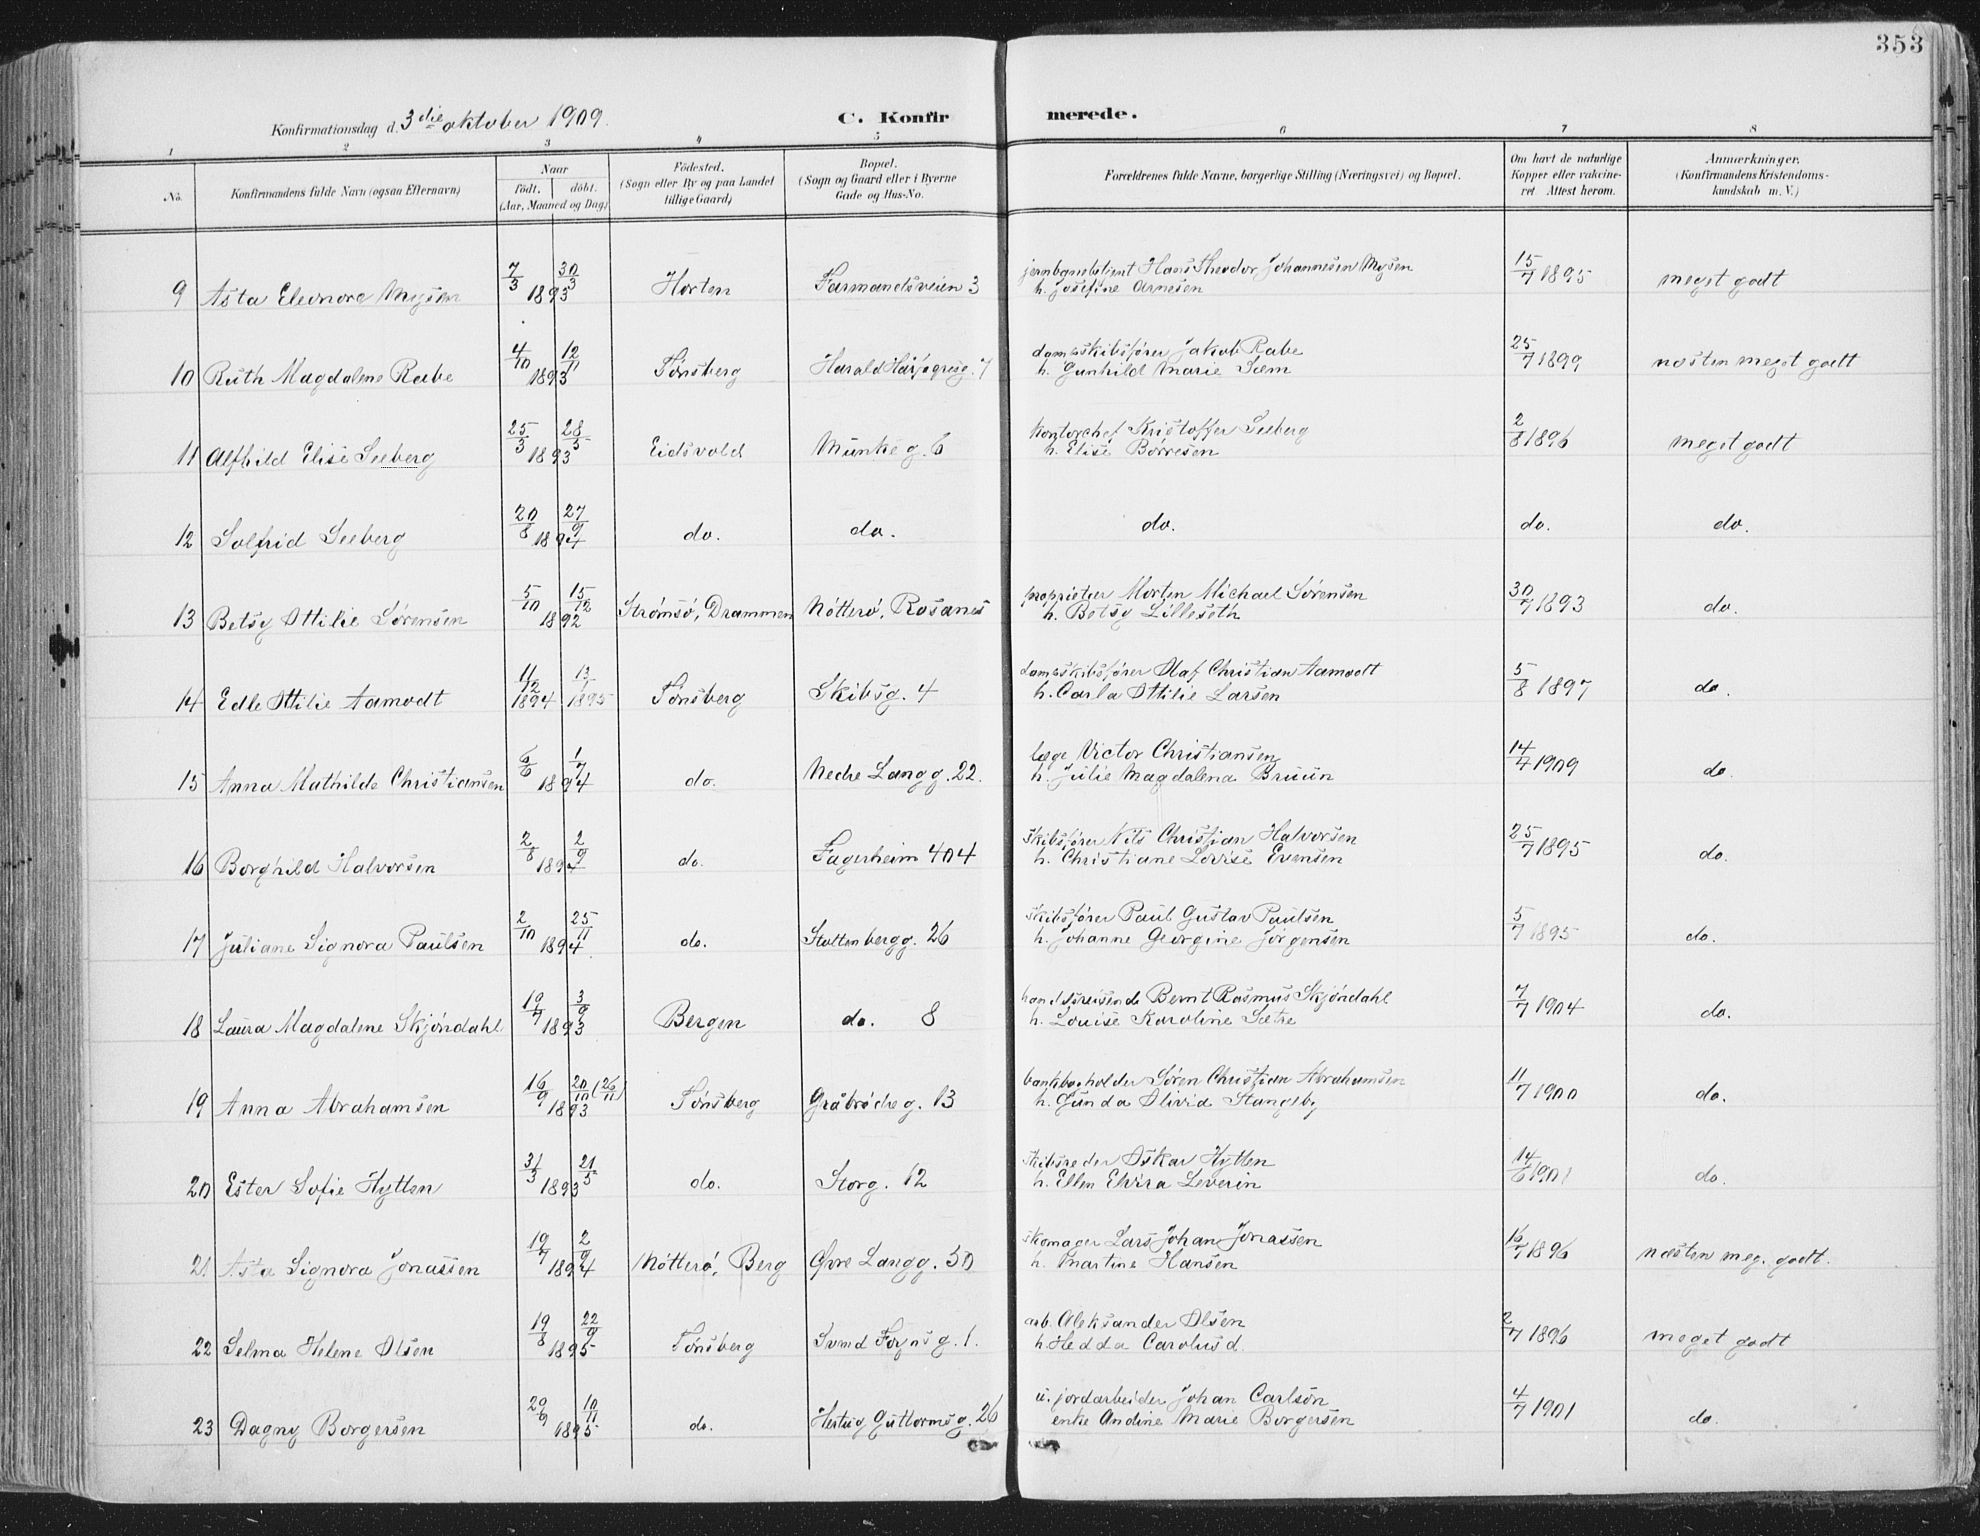 353
Konfirmationsdag d. 3die oktober 1909.
C. Konfirmerede.
1 2 3 4 5 6 7 8
No. Konfirmandens fulde Navn (ogsaa Efternavn) Naar födt. döbt. (Aar, Maaned og Dag) Födested. (Sogn eller By og paa Landet tillige Gaard) Bopæl. (Sogn og Gaard eller i Byerne Gade og Hus-No. Forældrenes fulde Navne, borgerlige Stilling (Næringsvei) og Bopæl. Om havt de naturlige Kopper eller vakcineret. Attest herom. Anmærkninger. (Konfirmandens Kristendomskundskab m. V.)
9 Asta Eleonore Mysen 7/3 30/3 1893 Horten Farmandsveien 3 jernbanebetjent Hans Theodor Johannesen Mysen 15/7 1895 meget godt
h. Josefine Arnesen
10 Ruth Magdalene Rabe 4/10 12/11 1893 Tønsberg Harald Hårfagresg. 7 dampskibsfører Jakob Rabe 25/7 1899 næsten meget godt
h. Gunhild Marie Sem
11 Alfhild Elise Seeberg 25/3 28/5 1893 Eidsvold Munkeg. 6 kontorchef Kristoffer Seeberg 2/8 1896 meget godt
h. Elise Børresen
12 Solfrid Seeberg 20/8 27/9 1894 do. do. do. do. do.
13 Betsy Ottilie Sørensen 5/10 15/12 1892 Strømsø, Drammen Nøtterø, Rosanes proprietær Morten Michael Sørensen 30/7 1893 do.
h. Betsy Lilleseth
14 Edle Ottilie Aamodt 11/12 1894 13/1 1895 Tønsberg Skibsg. 4 dampskibsfører Olaf Christian Aamodt 5/8 1897 do.
h. Carla Ottilie Larsen
15 Anna Mathilde Christiansen 6/6 1/7 1894 do. Nedre Langg. 22. læge Victor Christiansen 14/7 1909 do.
h. Julie Magdalena Bruun
16 Borghild Halvorsen 2/8 2/9 1894 do. Fagerheim 404 skibsfører Nils Christian Halvorsen 25/7 1895 do.
h. Christiane Lovise Evensen
17 Juliane Signora Paulsen 2/10 25/11 1894 do. Stoltenbergg. 26 skibsfører Paul Gustav Paulsen 5/7 1895 do.
h. Johanne Georgine Jørgensen
18 Laura Magdalene Skjøndahl 19/7 3/9 1893 Bergen do. 8 handelsreisende Bernt Rasmus Skjøndahl 7/7 1904 do.
h. Louise Karoline Sætre
19 Anna Abrahamsen 16/9 20/10 (26/11) 1893 Tønsberg Gråbrødreg. 13 bankbogholder Søren Christian Abrahamsen 11/7 1900 do.
h. Gunda Olivia Stangeby
20 Ester Sofie Hytten 31/3 21/5 1893 do. Storg. 12 skibsreder Oskar Hytten 14/6 1901 do.
h. Ellen Elvira Leverin
21 Asta Signora Jonassen 19/7 2/9 1894 Nøtterø, Berg Øvre Langg. 50 skomager Lars Johan Jonassen 16/7 1896 næsten meg. godt.
h. Martine Hansen
22 Selma Helene Olsen 19/8 22/9 1895 Tønsberg Svend Foynsg. 1. arb. Aleksander Olsen 2/7 1896 meget godt
h. Hedda Carolusd.
23 Dagny Borgersen 20/9 10/11 1895 do. Hertug Guttormsg. 26 u. jordarbeider Johan Carlsøn 4/7 1901 do.
enke Andine Marie Borgersen